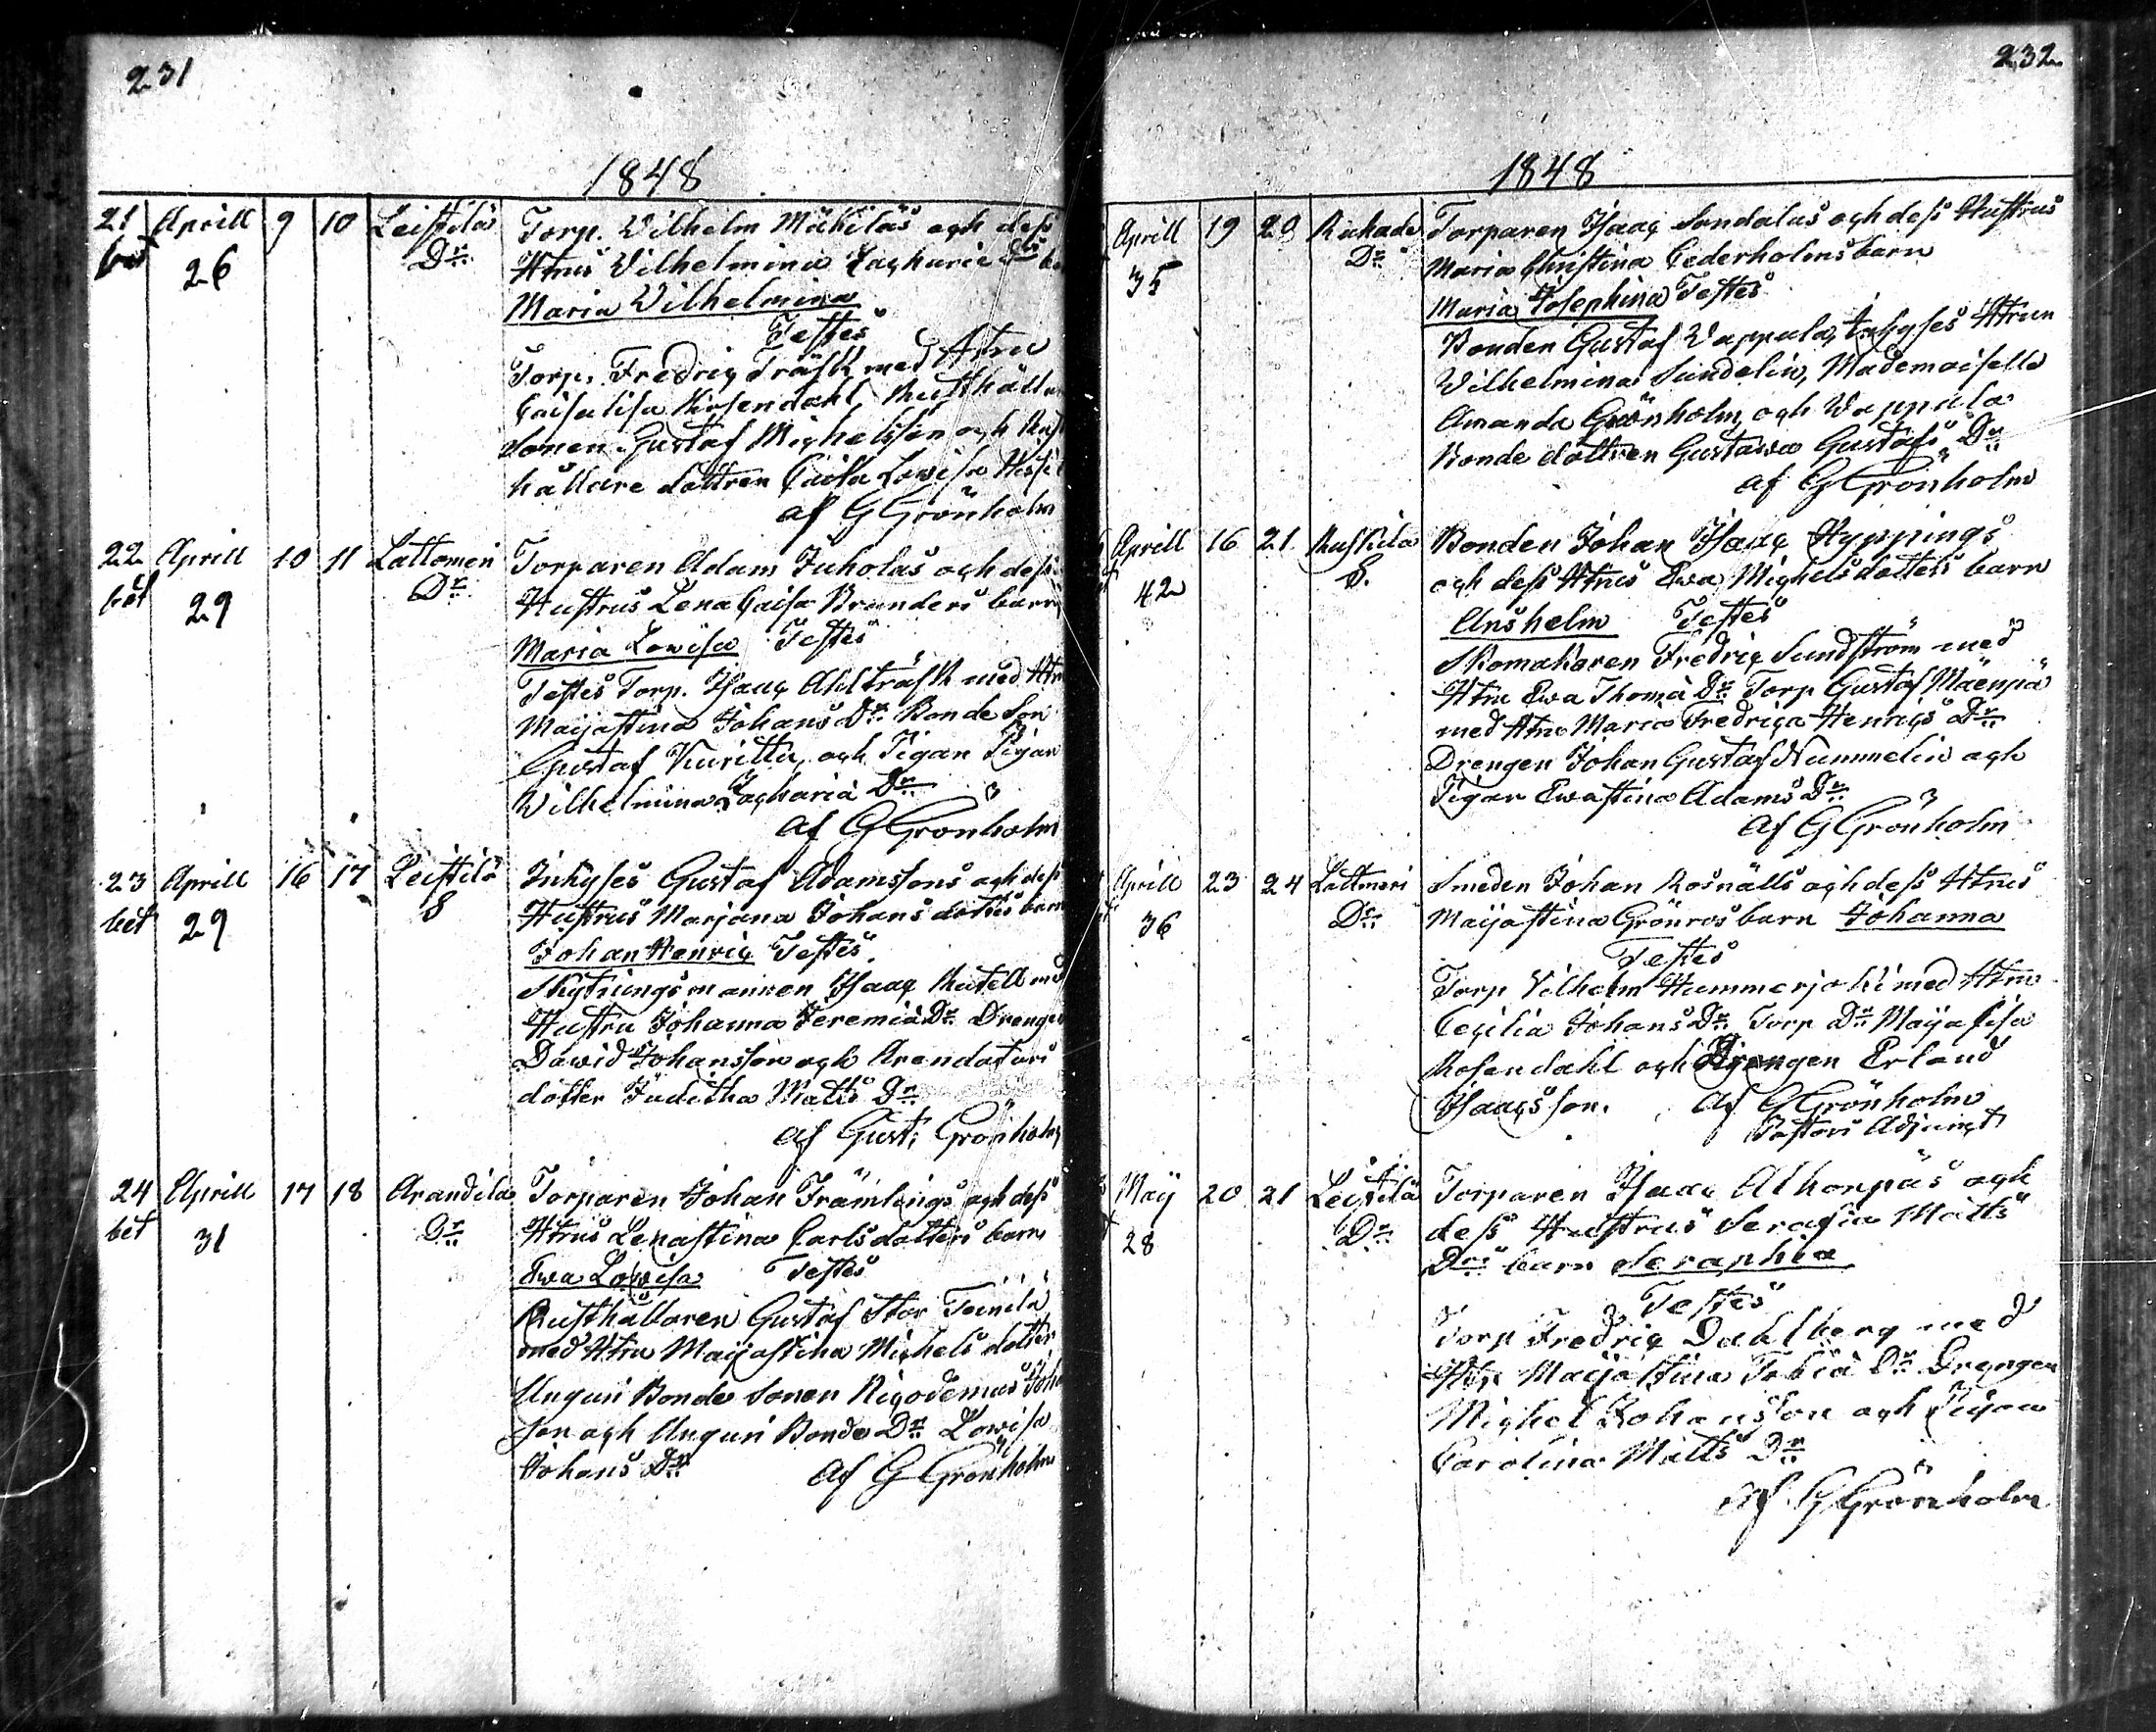 231
1848
21 Aprill 9 10 Leistilä Torp. Wilhelm Mäkiläs och dess
bet 26 Dr. Htrus Wilhelmina Zachariæ Drs
Maria Wilhelmina
Testes
Torp. Fredric Träsk med Htru
Caisalisa Rosendahl, Rusthålla
Sonen Gustaf Michelsson och Rust
hållare dottren Caisa Lowisa
af G Grönholm
22 Aprill 10 11 Lattomeri Torparen Adam Juholas och dess
bet 29 Dr. Hustrus Lena Caisa Branders barn
Maria Lowisa Testes
Testes Torp. Isaac Ahlträsk med Htr
Maijastina Johans Dr. Bonde Son
Gustaf Kuritta, och Pigan Pigan
Wilhelmina Zachariæ Dr.
af G Grönholm
23 Aprill 16 17 Leistilä Inhyses Gustaf Adamssons och dess
bet 29 S Hustrus Marjana Johans dotters barn
Johan Henric Testes.
Skjutningsmannen Isaac Rutell med
Hustru Johanna Jeremiæ Dr. Drengen
Dawid Johansson och Arendators
dotter Juditha Matts Dr.
af Gust: Grönholm
24 Aprill 17 18 Arandila Torparen Johan Främlings och dess
bet 31 Dr. Htrus Lenastina Carlsdotters barn
Ewa Lowisa Testes
Rusthållaren Gustaf Stor Teinilä
med Htru Maijastina Michels dotter
Unguri Bonde Sonen Nicodemus Joha
son och Unguri Bonde Dr. Lowisa
Johans Dr. af G Grönholm
232
1848
Aprill 19 20 Torparen Isaac Sondalas och dess Hustrus
35 Dr. Maria Christina Cederholms barn
Maria Josephina Testes
Bonden Gustaf Wappula, Inhyses Htrun
Wilhelmina Sundelin, Mademoiselle
Amanda Grönholm och Wappula
Bonde dottren Gustawa Gustafs Dr.
af G Grönholm
Aprill 16 21 Ruskila Bonden Johan Isaac Hyppings
42 S. och dess Htrus Ewa Michelsdotters barn
Anshelm Testes
Skomakaren Fredric Sundström med
Htru Ewa Thomæ Dr. Torp Gustaf Mäenpä
med Htru Maria Fredrica Henrics Dr.
Drengen Johan Gustaf Nummelin och
Pigan Ewastina Adams Dr.
af G Grönholm
Aprill 23 24 Lattmeri Smeden Johan Rosnälls och dess Htrus
36 Dr. Maijastina Grönros barn Johanna
Testes
Torp Vilhelm Hummerjoki med Htru
Cecilia Johans Dr. Torp Dr. Maijalisa
Rosendahl och Drengen Erland
Isaacsson. af G Grönholm
Pastors Adjunct
Maij 20 21 Leistilä Torparen Isaac Alhonpäs och
28 Dr. dess Hustrus Serafia Matts
Drs barn Seraphia
Testes
Torp Fredric Dahlberg med
Htru Maijastina Tobiæ Dr. Drengen
Michel Johansson och Pigan
Carolina Matts Dr.
af G Grönholm